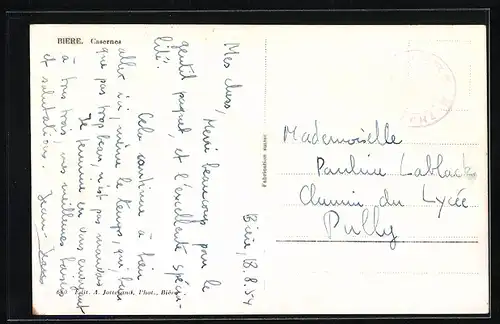 BIÈRE. Casernes
Bière, 18.8.54
Mes chers,
Merci beaucoup pour le
gentil paquet, et l'excellente spécia-
lité.
Cela continue à bien
aller ici, même le temps, qui, bien
que pas trop beau, n'est pas mauvais.
Je termine en vous envoyant
à tous trois, mes meilleurs baisers
et salutations.
Jean-
Edit. A. Phot., Bière
Fabrication suisse
Mademoiselle
Pauline Lablack
Chemin du Lycée
Pully